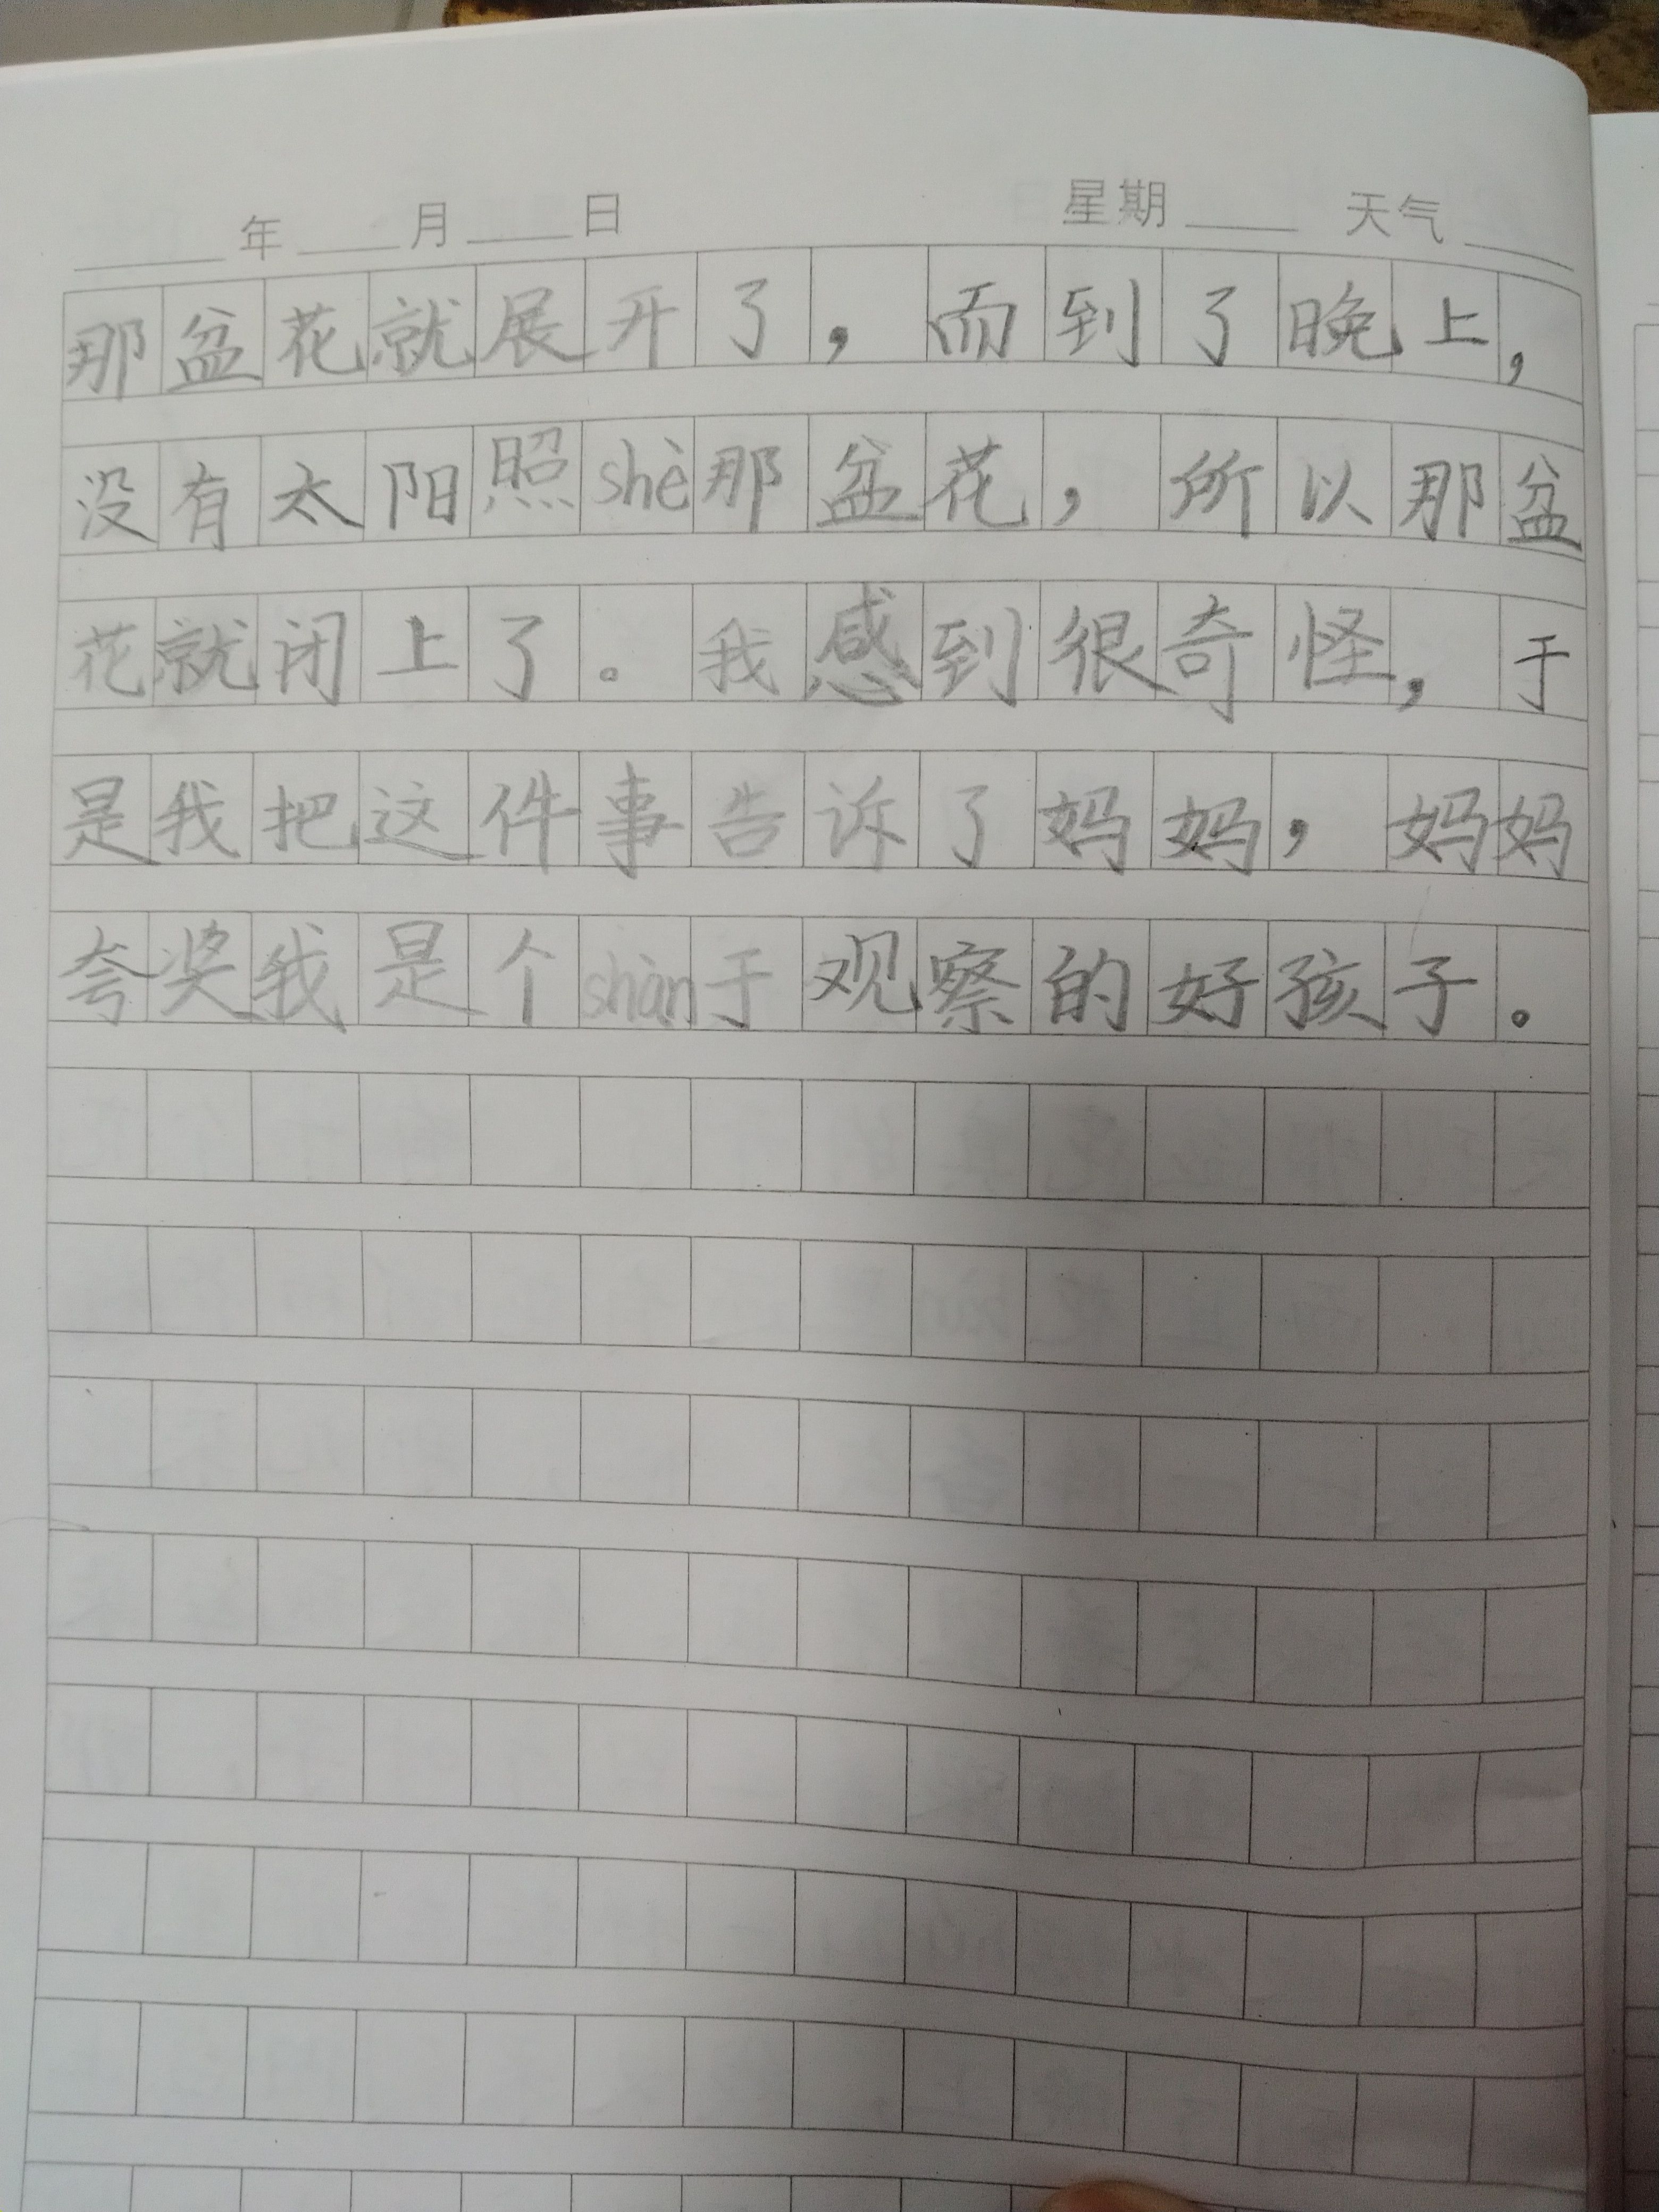 年 月 日 星期 天气
那盆花就展开了，而到了晚上，
没有太阳照shè那盆花，所以那盆
花就闭上了。我感到很奇怪，于
是我把这件事告诉了妈妈，妈妈
夸奖我是个shàn于观察的好孩子。